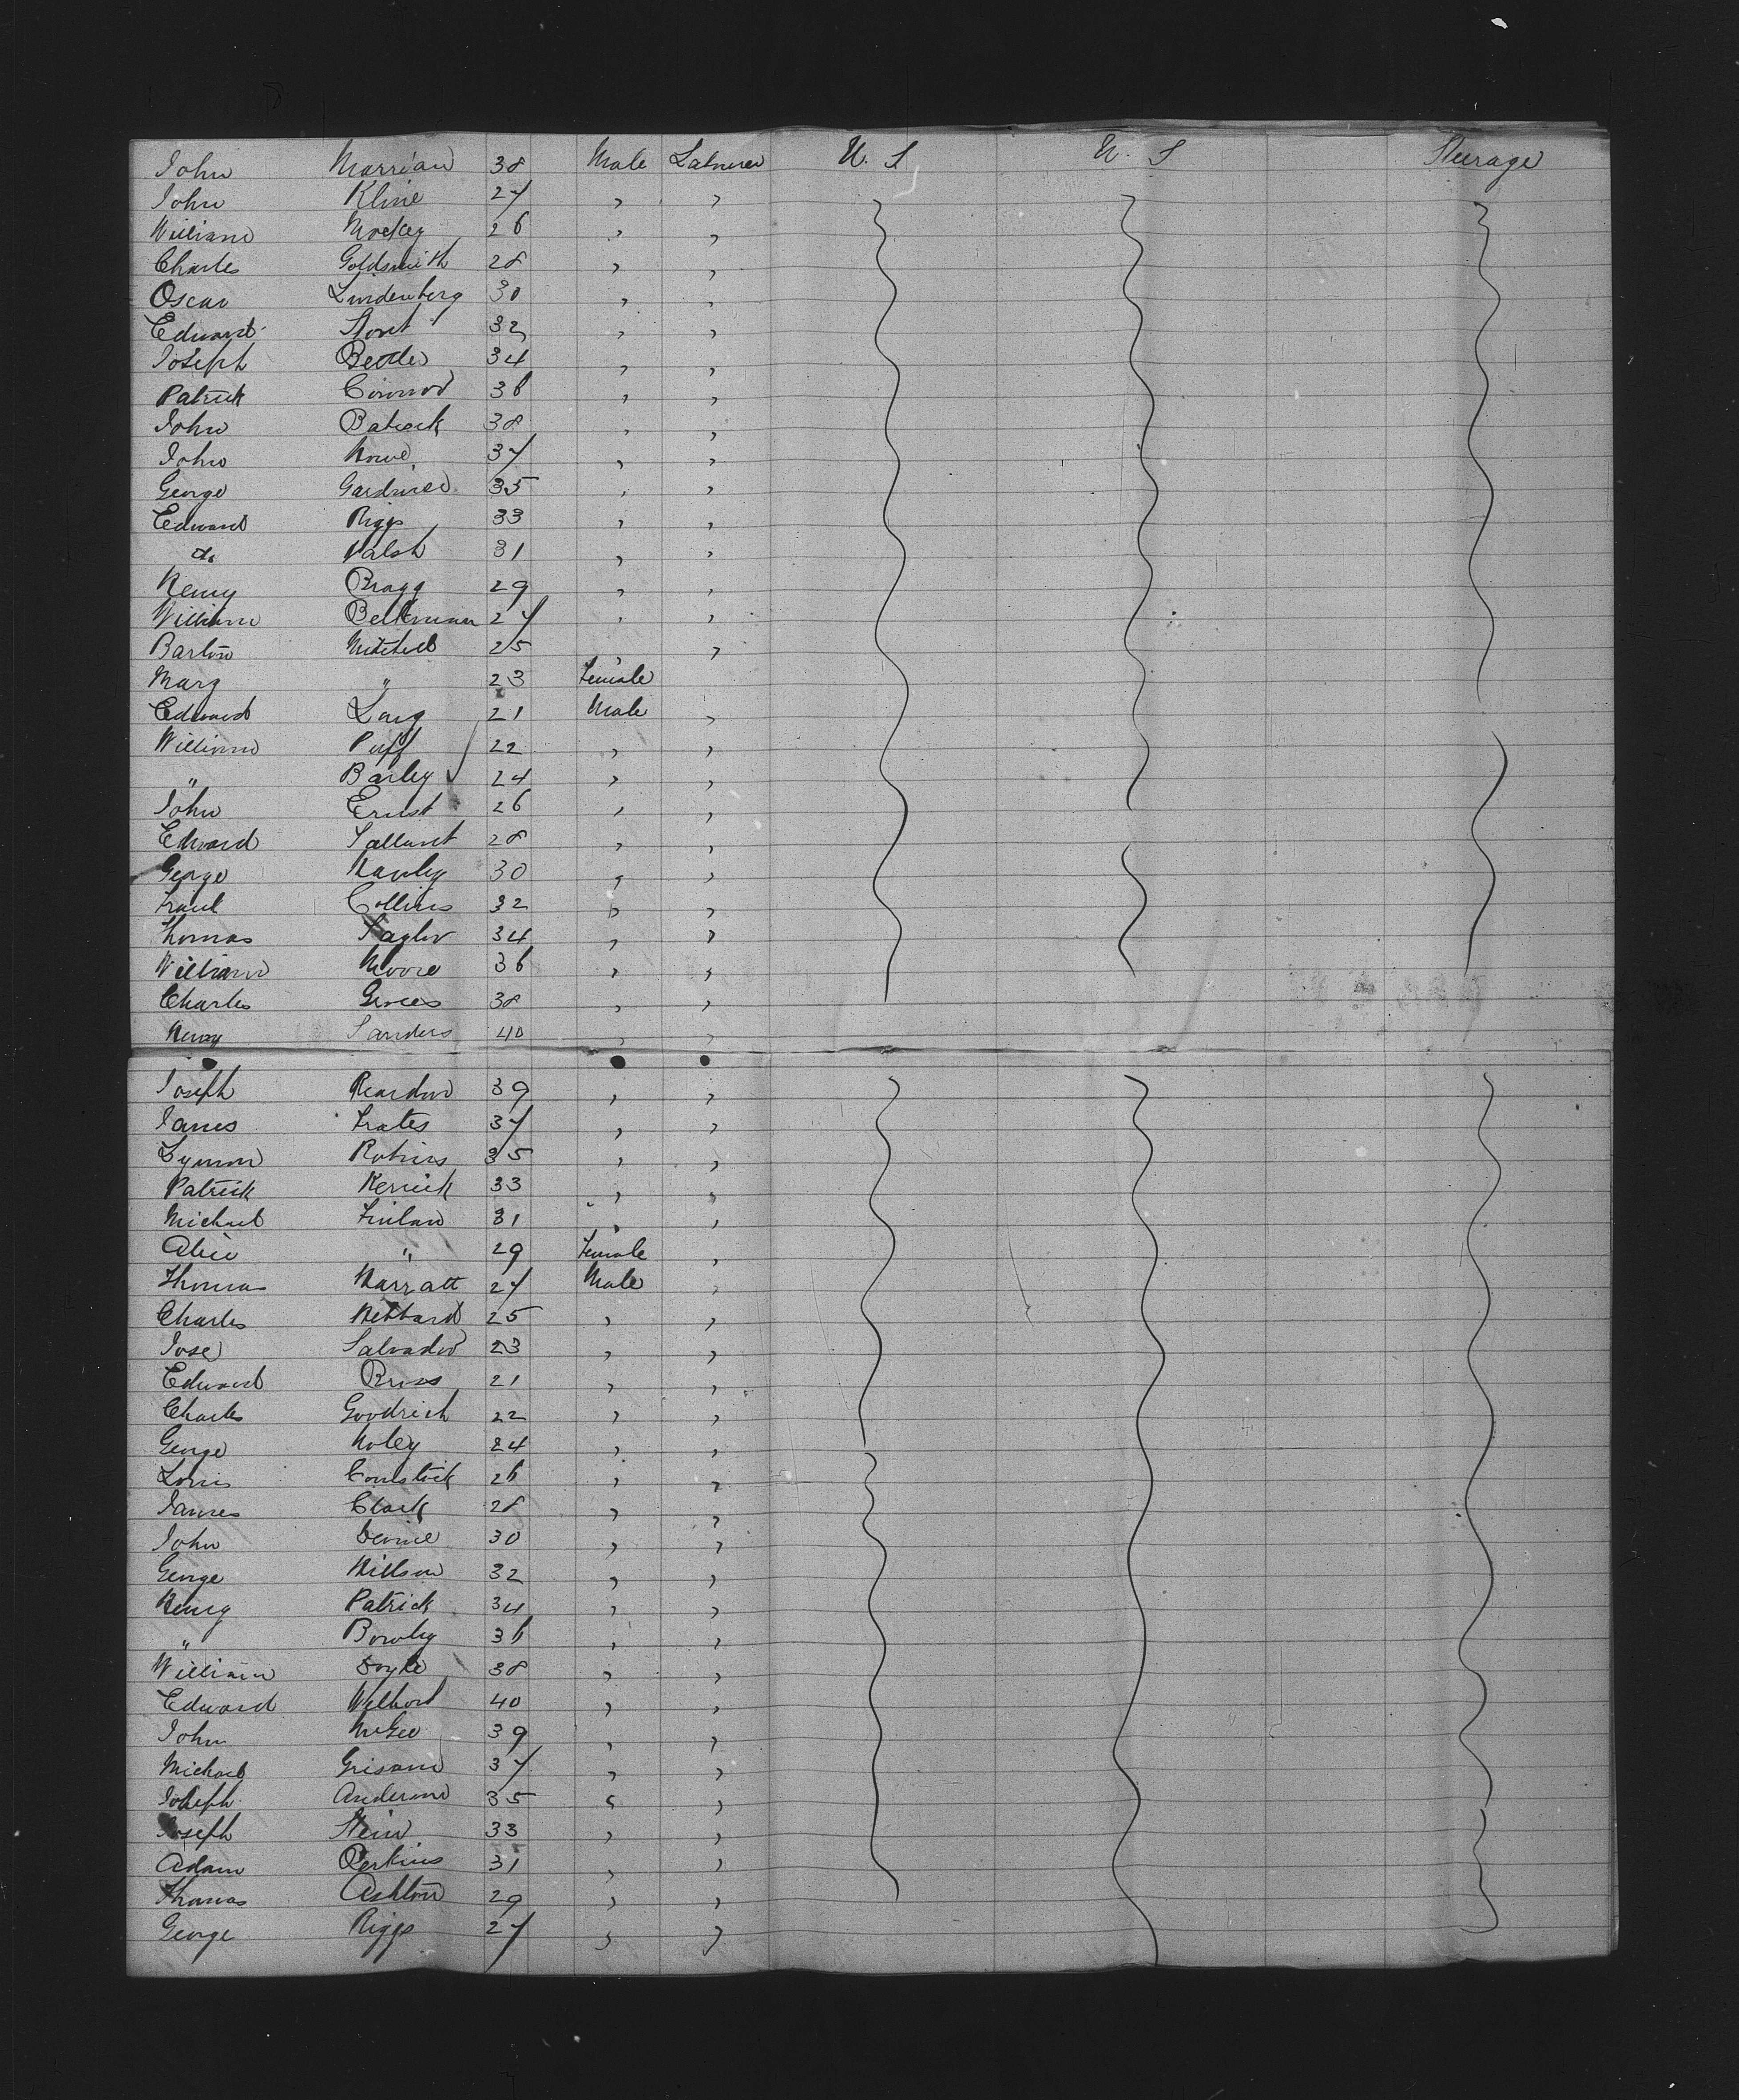 John Marrian 38 Male Laborer U. S U. S Steerage
John Kline 27 " "
William Mockey 26 " "
Charles Goldsmith 28 " "
Oscar Lindenberg 30 " "
Edward Stout 32 " "
Joseph 34 " "
Patrick Connor 36 " "
John Babcock 38 " "
John Howe 37 " "
George Gardiner 35 " "
Edward Riggs 33 " "
do Walsh 31 " "
Henry Bragg 29 " "
William Beltzman 27 " "
Barton Mitchell 25 " "
Mary " 23 Female
Edward Long 21 Male "
William Puff 22 " "
" Barley 24 " "
John Ernst 26 " "
Edward 28 " "
George Hawley 30 " "
Frank Collins 32 " "
Thomas Taylor 34 " "
William Moore 36 " "
Charles 38 " "
Henry Sanders 40 " "
Joseph Reardon 39 " "
James Frates 37 " "
Lyman Robins 35 " "
Patrick Kerrick 33 " "
Michael Finlan 31 " "
Alice " 29 Female "
Thomas Marratt 27 Male "
Charles Hebbard 25 " "
Jose Salvador 23 " "
Edward Bross 21 " "
Charles Goodrich 22 " "
George Noley 24 " "
Louis Comstock 26 " "
James Clark 28 " "
John Devine 30 " "
George Willson 32 " "
Henry Patrick 34 " "
" Bowley 36 " "
William Doyle 38 " "
Edward 40 " "
John McGee 39 " "
Michael Grisom 37 " "
Joseph Anderson 35 " "
Joseph Stein 33 " "
Adam Perkins 31 " "
Thomas Ashton 29 " "
George Riggs 27 " "